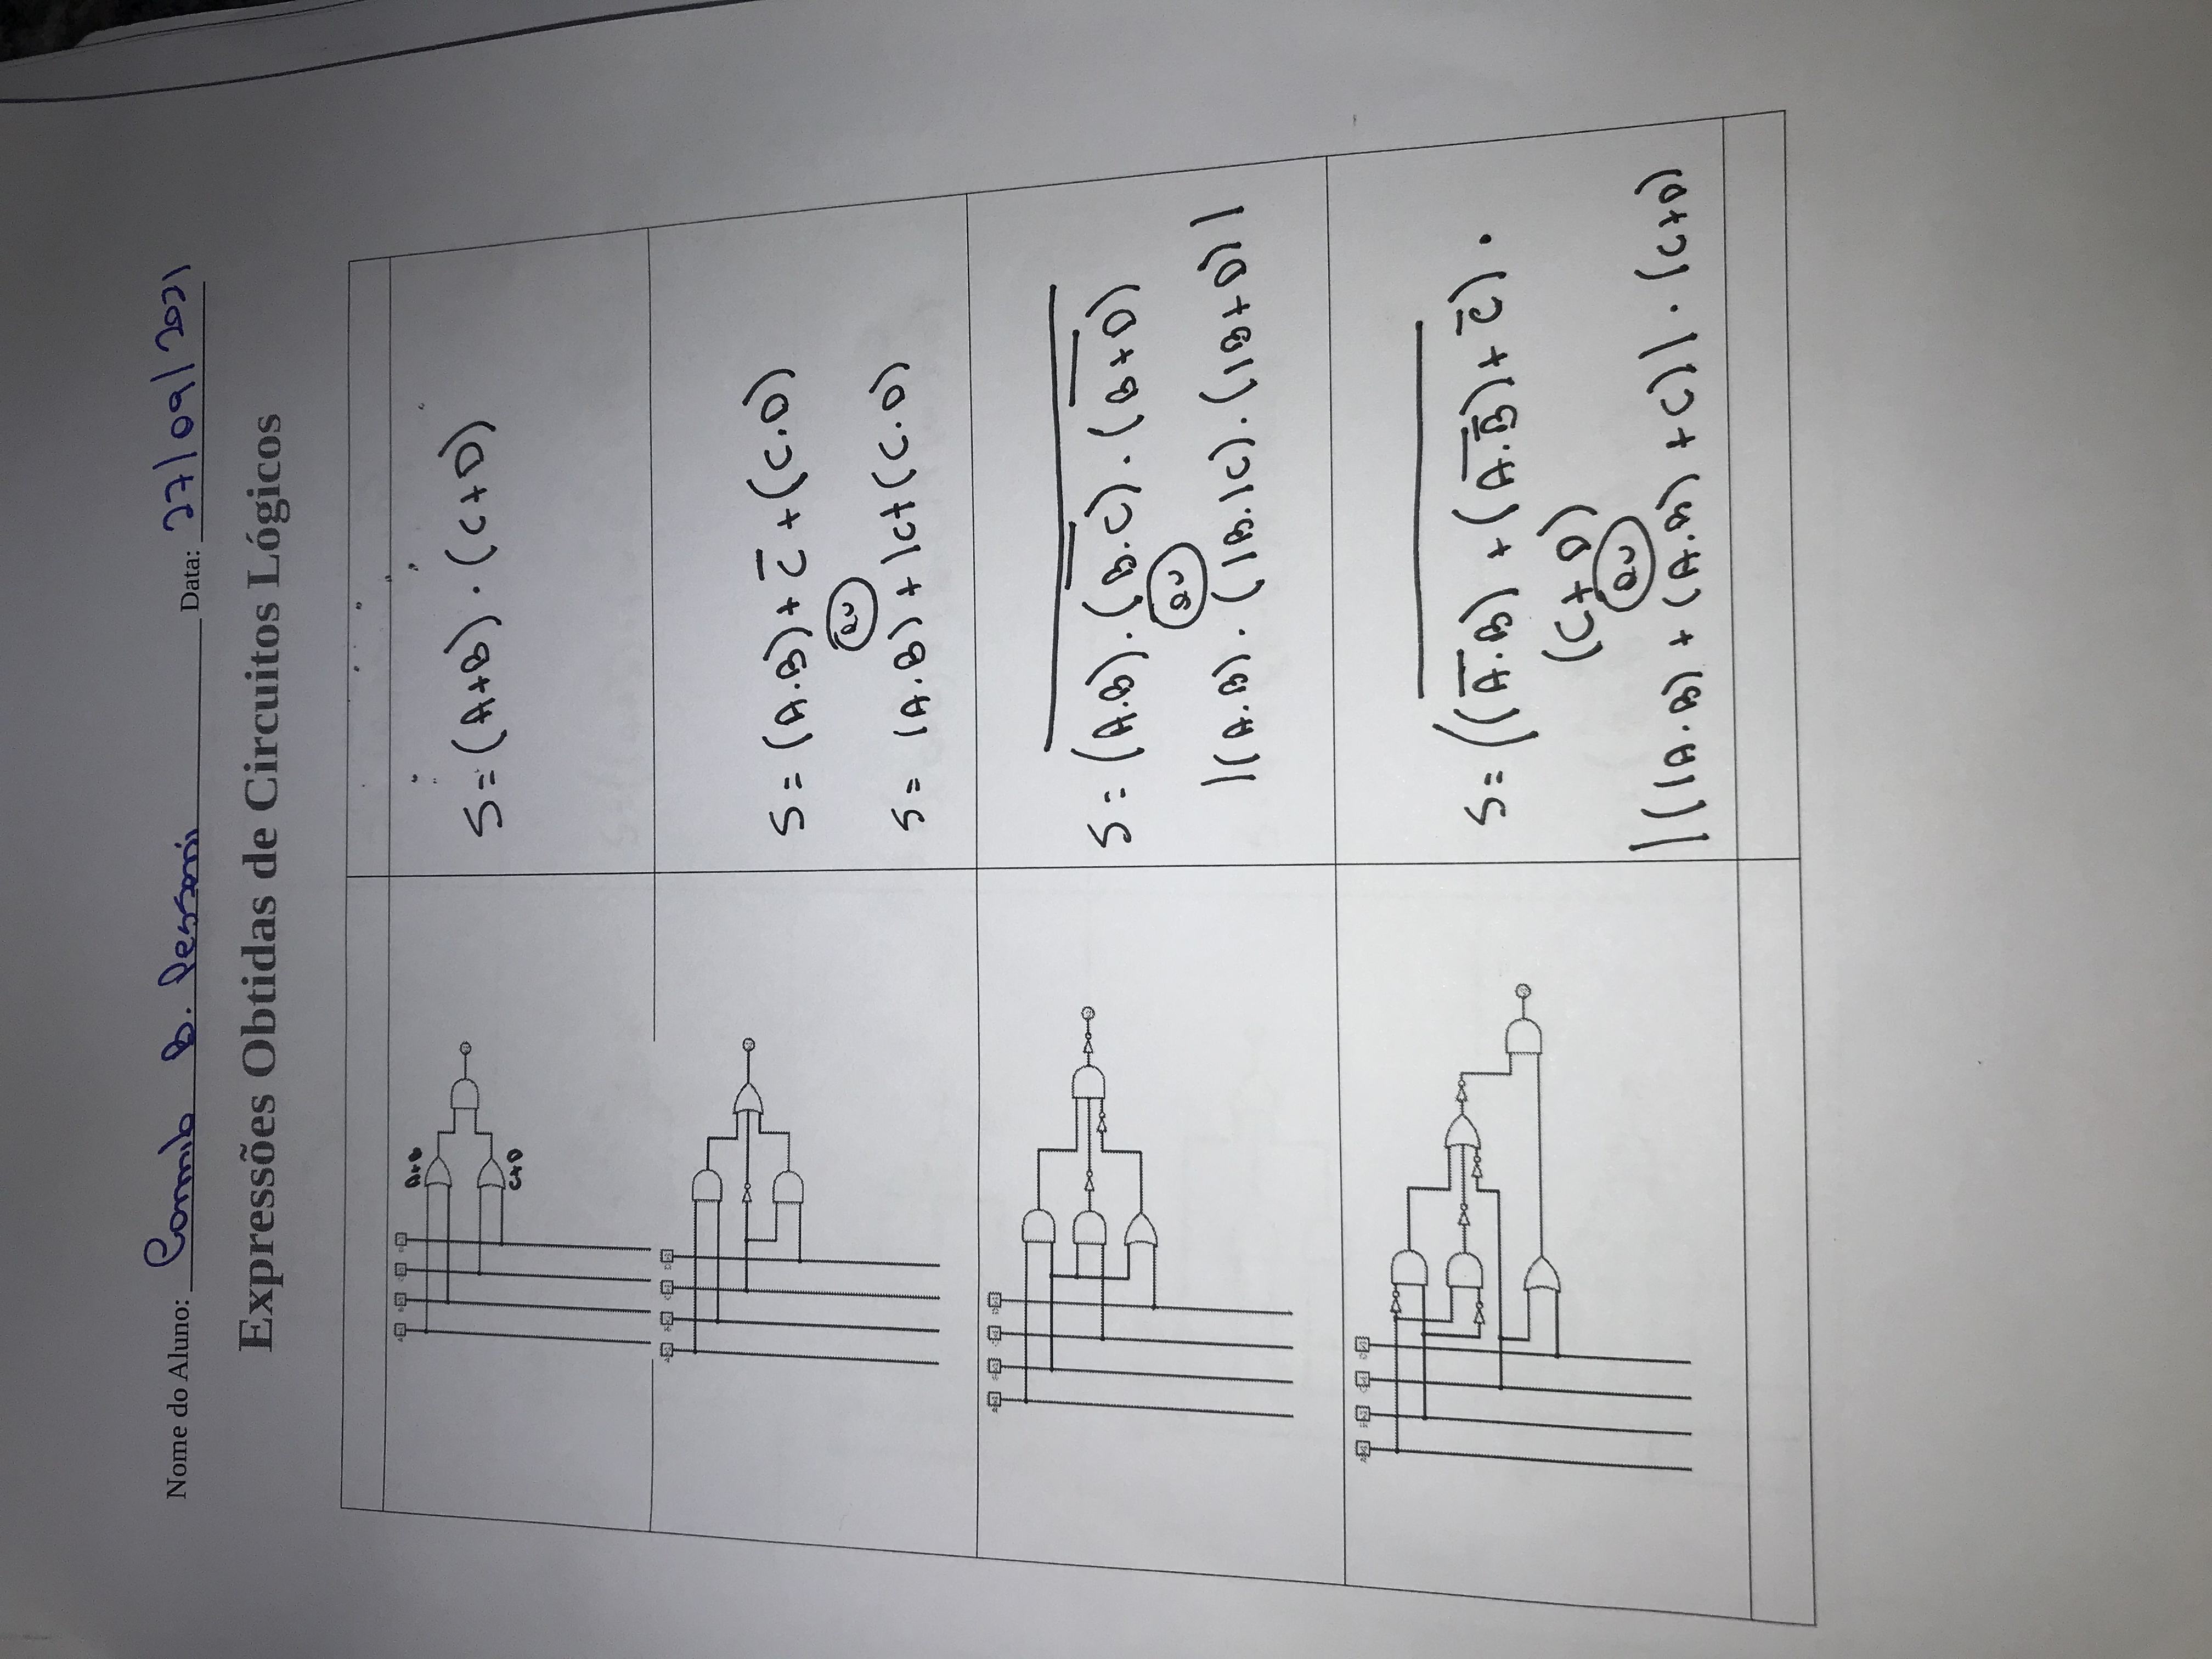 Nome do Aluno: Camila B. Pessoni Data: 27/09/2021
Expressões Obtidas de Circuitos Lógicos
A+B
C+D
S = (A+B) . (C+D)
S = (A.B) + C̅ + (C.D)
ou
S = (A.B) + |C + (C.D)
S = (A.B) . (B.C) . (B+D)
ou
|(A.B) . (|B.|C) . (|B+D) |
S = ((A̅.B) + (A.B̅) + C̅) .
(C+D)
ou
|((A.B) + (A.B) + C) | . (C+D)